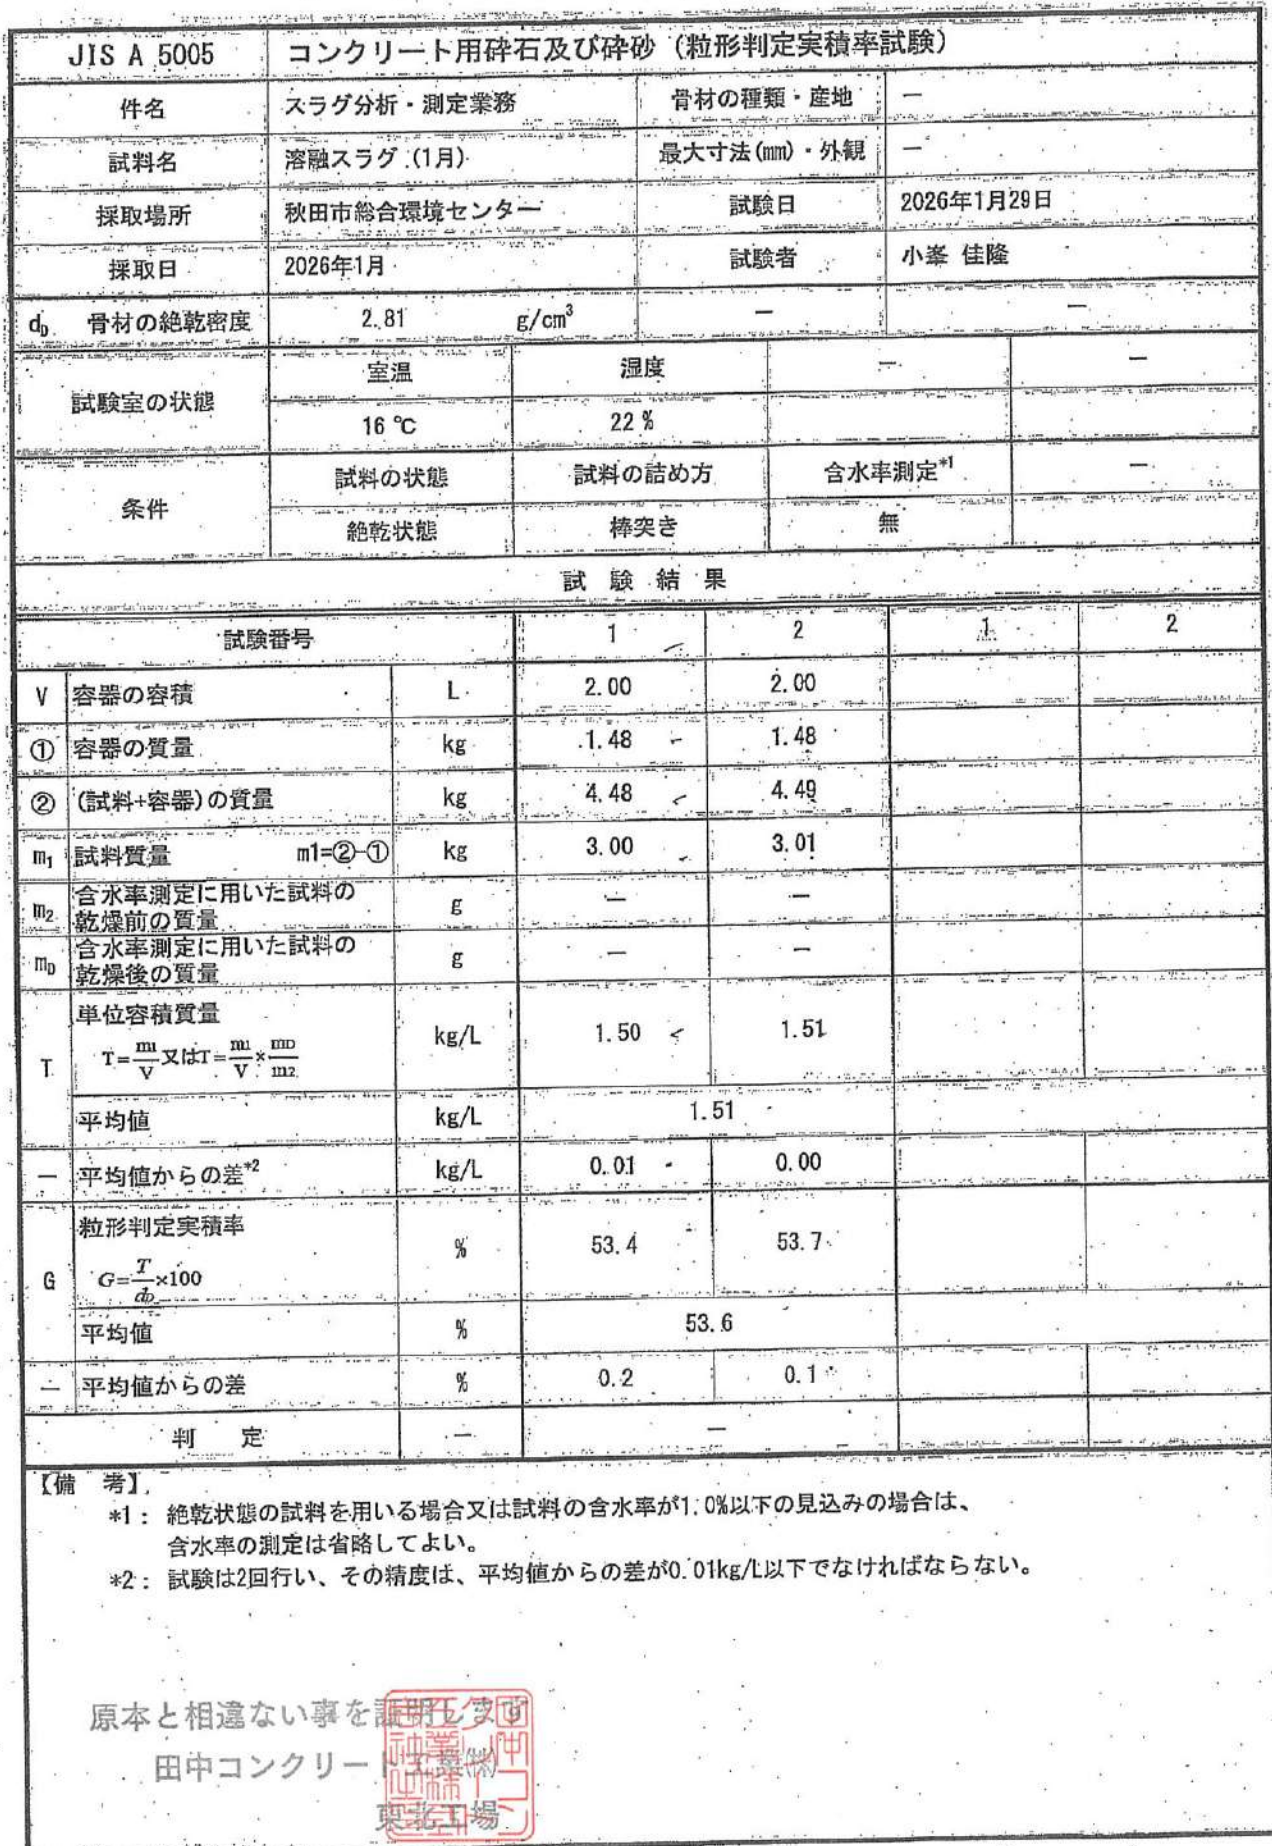 JIS A 5005 コンクリート用砕石及び砕砂（粒形判定実積率試験）
件名 スラグ分析・測定業務 骨材の種類・産地 —
試料名 溶融スラグ(1月) 最大寸法(mm)・外観 —
採取場所 秋田市総合環境センター 試験日 2026年1月29日
採取日 2026年1月 試験者 小峯 佳隆
dD 骨材の絶乾密度 2.81 g/cm³ — —
試験室の状態 室温 湿度 — —
16 ℃ 22 %
条件 試料の状態 試料の詰め方 含水率測定*1 —
絶乾状態 棒突き 無
試 験 結 果
試験番号 1 2 1 2
V 容器の容積 L 2.00 2.00
① 容器の質量 kg 1.48 1.48
② (試料+容器)の質量 kg 4.48 4.49
m1 試料質量 m1=②-① kg 3.00 3.01
m2 含水率測定に用いた試料の
乾燥前の質量 g — —
mD 含水率測定に用いた試料の
乾燥後の質量 g — —
T 単位容積質量 kg/L 1.50 1.51
T=m1/V又はT=m1/V×mD/m2
平均値 kg/L 1.51
— 平均値からの差*2 kg/L 0.01 0.00
G 粒形判定実積率 % 53.4 53.7
G=T/dD×100
平均値 % 53.6
— 平均値からの差 % 0.2 0.1
判 定 — —
【備 考】
*1： 絶乾状態の試料を用いる場合又は試料の含水率が1.0%以下の見込みの場合は、
含水率の測定は省略してよい。
*2： 試験は2回行い、その精度は、平均値からの差が0.01kg/L以下でなければならない。
原本と相違ない事を証明します
田中コンクリート工業㈱
東北工場